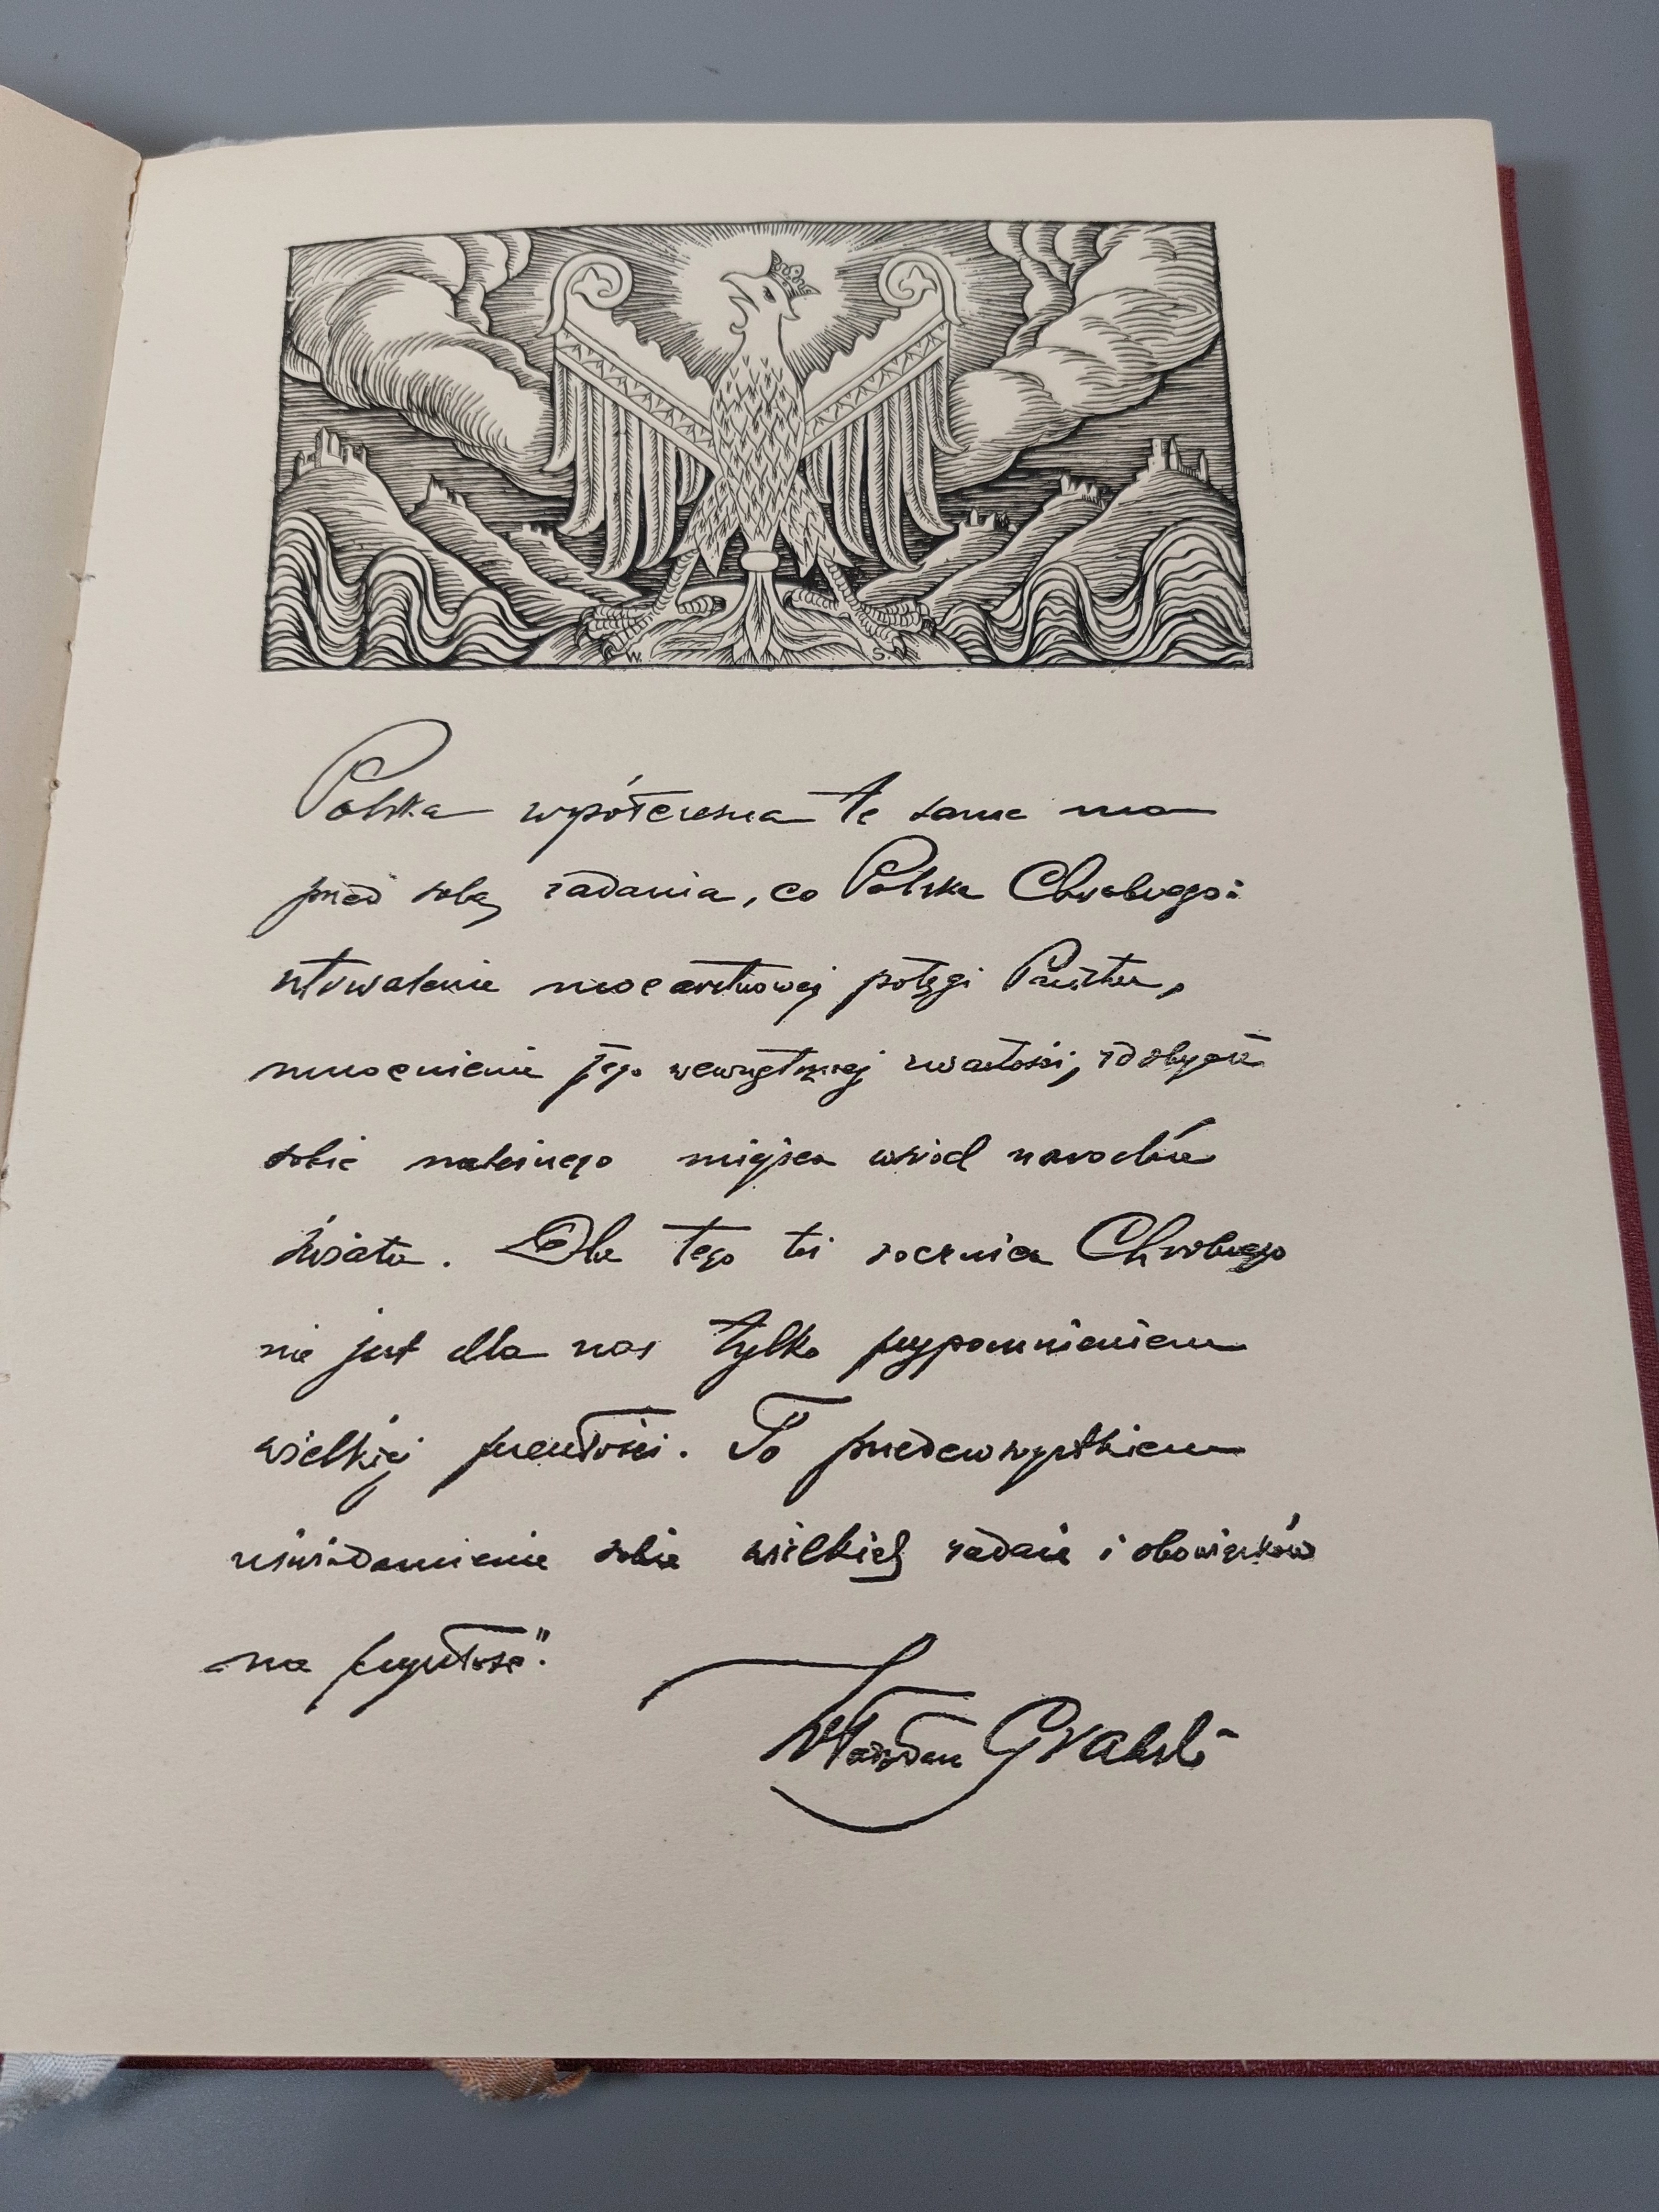 W. S.
Polska współczesna te same ma
przed sobą zadania, co Polska Chrobrego:
utrwalenie mocarstwowej potęgi Państwa,
wzmocnienie jego wewnętrznej zwartości, zdobycie
sobie należnego miejsca wśród narodów
świata. Dla tego też rocznica Chrobrego
nie jest dla nas tylko przypomnieniem
wielkiej przeszłości. To przedewszystkiem
uświadomienie sobie wielkich zadań i obowiązków
na przyszłość".
Władysław Grabski